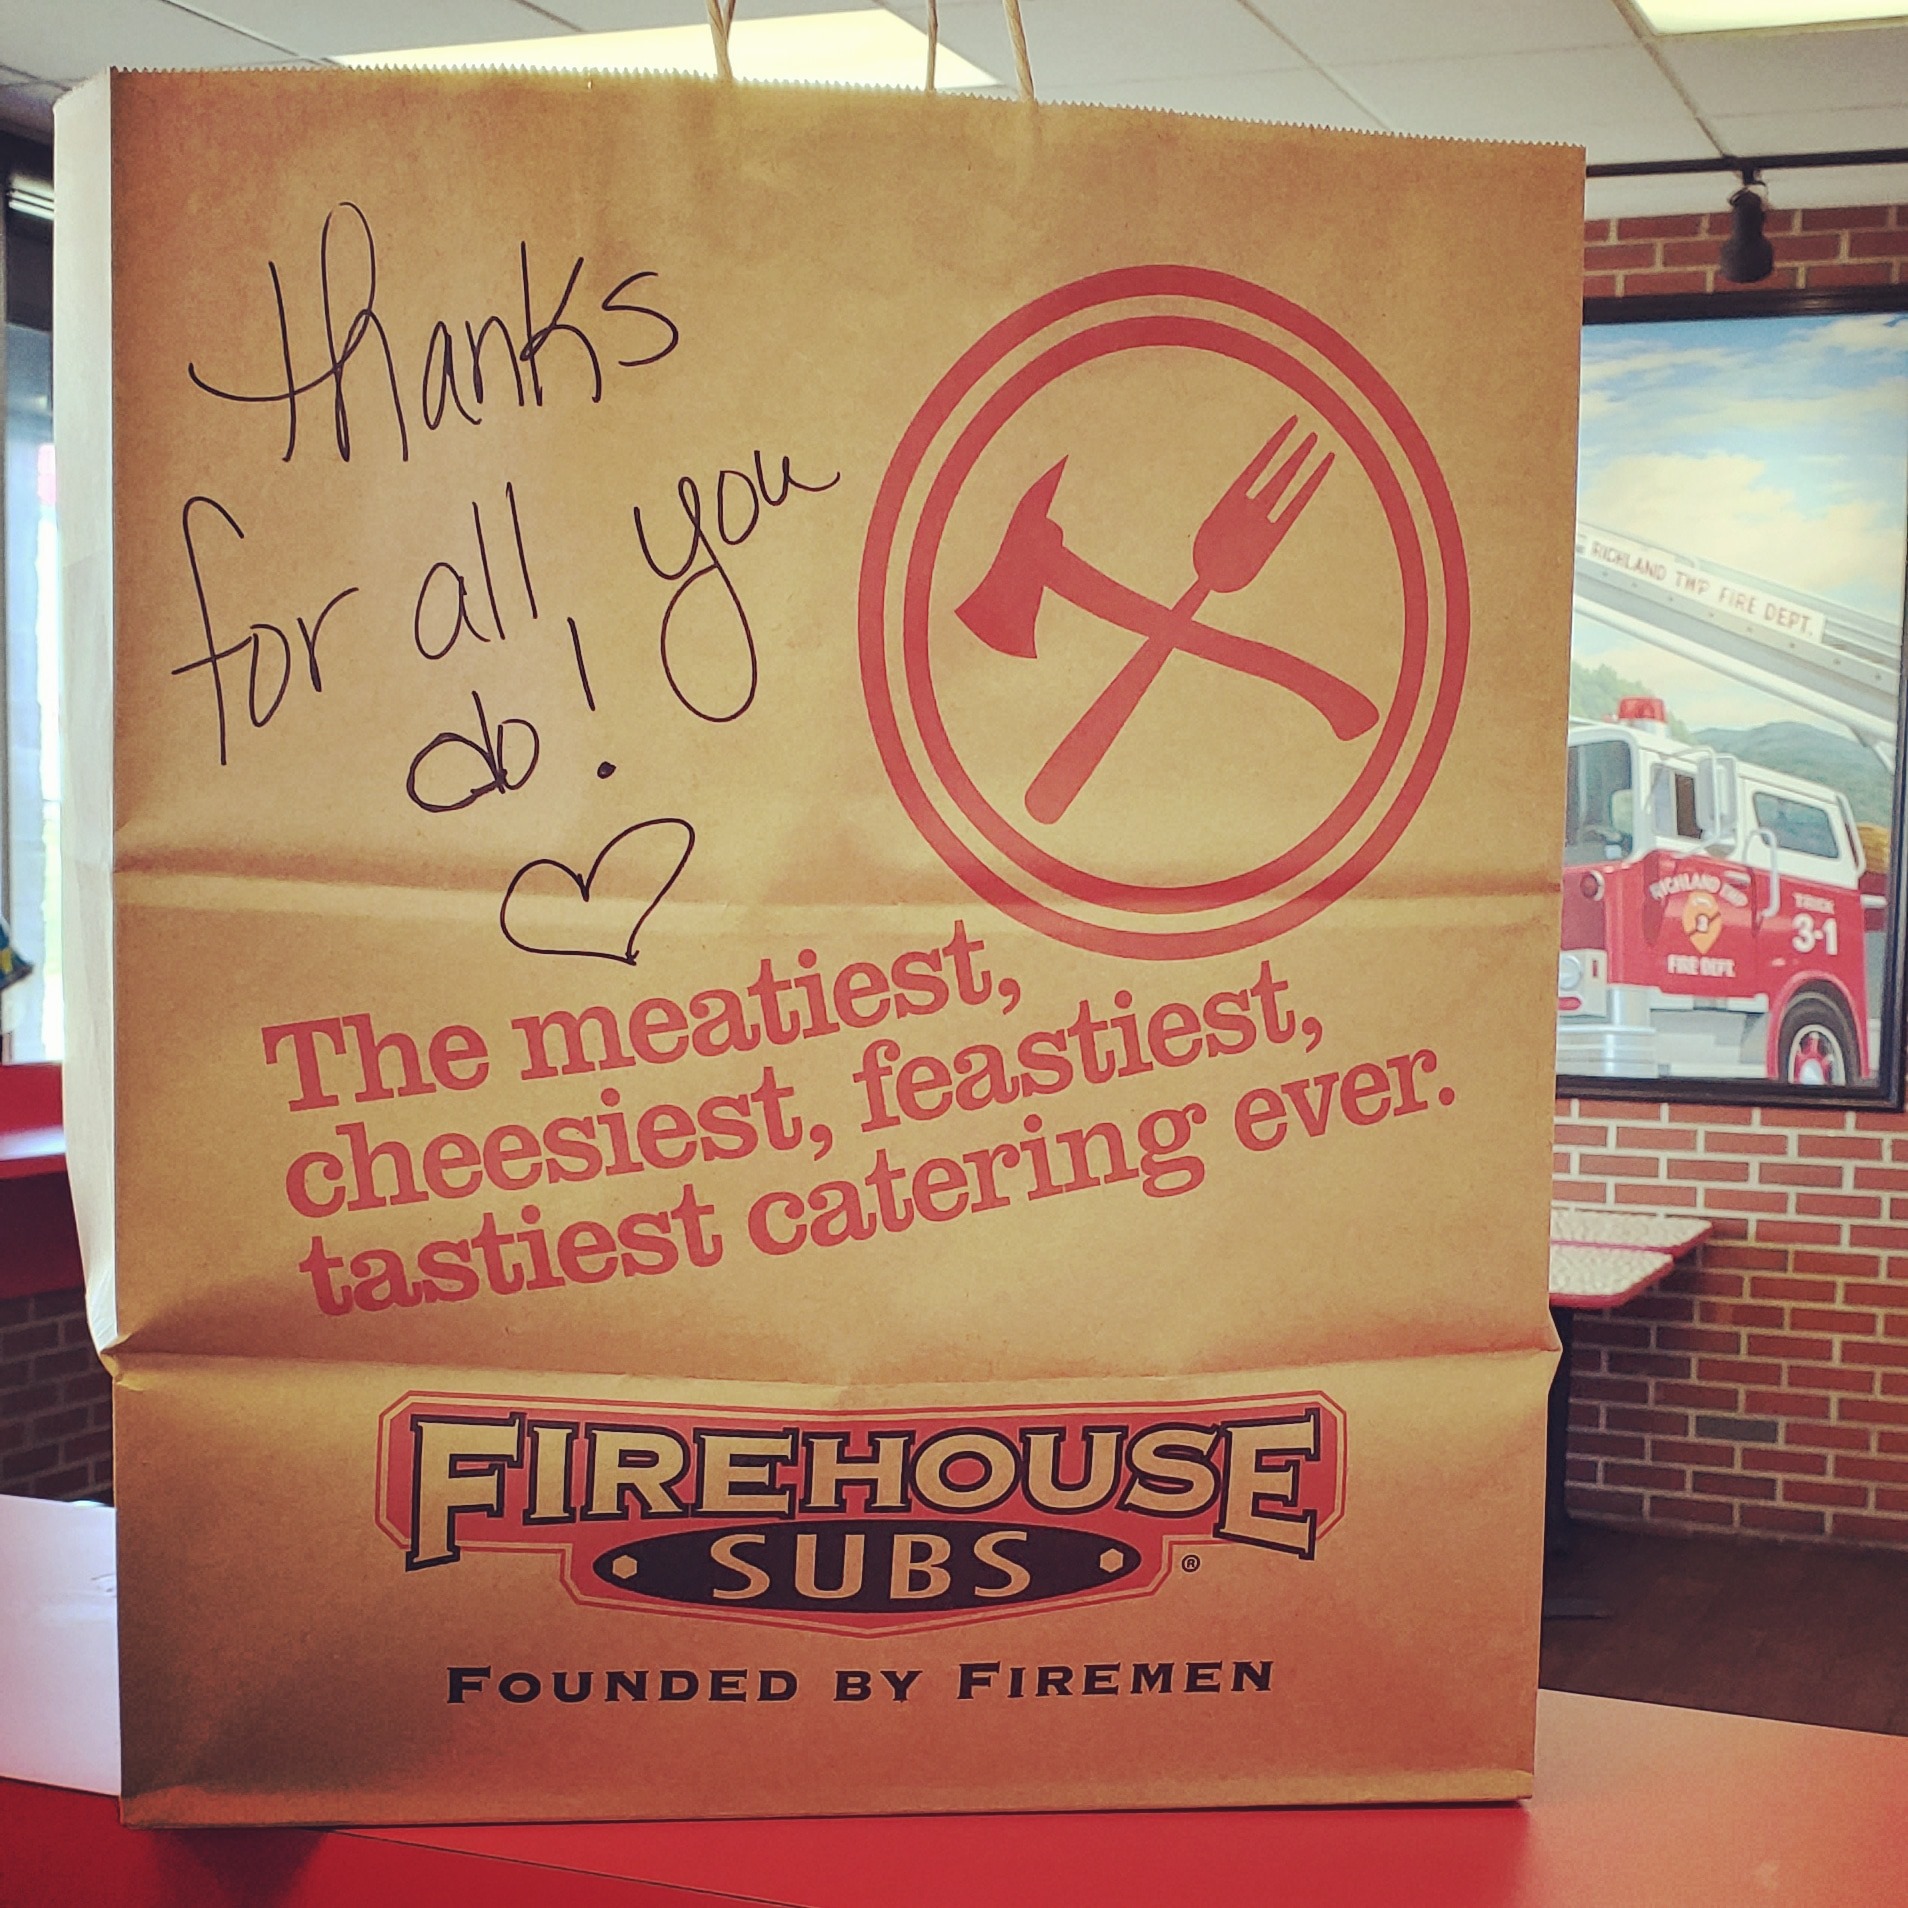 thanks
for all you
do!
The meatiest,
cheesiest, feastiest,
tastiest catering ever.
FIREHOUSE
SUBS ®
FOUNDED BY FIREMEN
RICHLAND TWP FIRE DEPT.
RICHLAND TWP
3
FIRE DEPT.
TRUCK
3-1